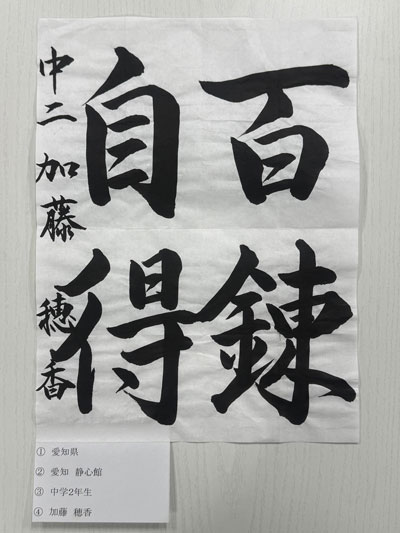 百錬
自得
中二 加藤 穂香
① 愛知県
② 愛知 静心館
③ 中学2年生
④ 加藤 穂香